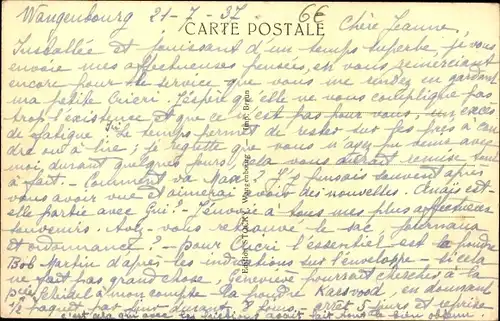 Wangenbourg 21-7-37 6€
CARTE POSTALE
Chère Jeanne,
Installée et jouissant d'un temps superbe, je vous
envoie mes affectueuses pensées, en vous remerciant
encore pour le service que vous me rendez en gardant
ma petite Cricri. J'espère qu'elle ne vous complique pas
trop l'existence et que ce n'est pas pour vous, un excès
de fatigue. Ici le temps permet de rester sur les prés à cou-
dre ou à lire; je regrette que vous n'ayez pu venir avec
moi, durant quelques jours, cela vous aurait remise tout
à fait. Comment va ? J'y pensais souvent après
vous avoir vue et aimerai avoir des nouvelles. Anaïs est-
elle partie avec Gui? J'envoie à tous mes plus affectueux
souvenirs. Avez-vous retrouvé le sac, journaux
et ordonnance? - pour Cricri l'essentiel est la poudre
Bob Martin d'après les indications sur l'enveloppe - si cela
ne fait pas grand chose, Geneviève pourrait chercher à la
à mon compte la poudre en donnant
1/2 paquet par jour durant jours, arrêt 5 jours et reprise
c'est cela qui avec les frictions avait fait tant de bien
Edition STOCKY, Wangenbourg